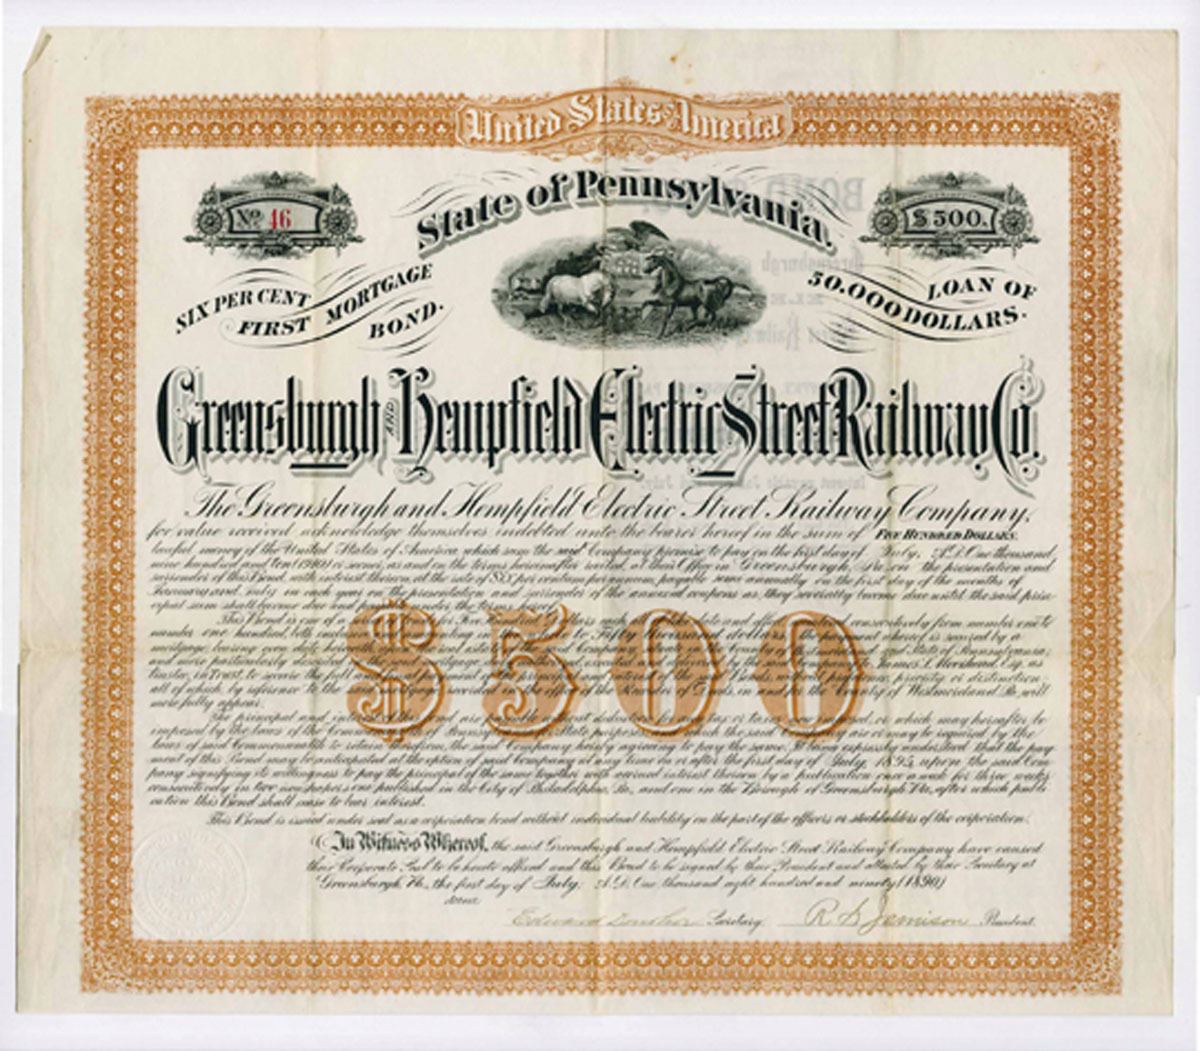 United States of America
State of Pennsylvania.
No. 46
$500.
SIX PER CENT
FIRST MORTGAGE
BOND.
LOAN OF
50.000 DOLLARS.
Greensburgh AND Hempfield Electric Street Railway Co.
The Greensburgh and Hempfield Electric Street Railway Company,
for value received acknowledge themselves indebted unto the bearer hereof in the sum of FIVE HUNDRED DOLLARS.
lawful money of the United States of America which sum the said Company promise to pay on the first day of July, A.D. One thousand,
nine hundred and ten (1910) or sooner, as and on the terms hereinafter recited, at their Office in Greensburgh, Pa. on the presentation and
surrender of this Bond, with interest thereon, at the rate of SIX per centum per annum, payable semi annually on the first day of the months of
January and July in each year on the presentation and surrender of the annexed coupons as they severally become due until the said princ
ipal sum shall become due and payable under the terms hereof
This Bond is one of a Five hundred dollars consecutively from number one to
number one hundred both inclusive amounting in to Fifty thousand dollars, the payment whereof is secured by a
mortgage, bearing even date herewith, of the real Company, and State of Pennsylvania,
and more particularly described in the said mortgage by the said Company to James S. Moorhead, Esq. as
trustee, in Trust, to secure the full and payment of the principal and interest of said Bonds, without preference, priority or distinction
all of which, by reference to the mortgage recorded in the office of the Recorder of Deeds, in and for the County of Westmoreland Pa. will
more fully appear.
The principal and interest of this Bond are payable without deduction for any tax or taxes imposed, or which may hereafter be
imposed by the laws of the Commonwealth of Pennsylvania for State purposes which the said are or may be required by the
laws of said Commonwealth to retain therefrom, the said Company hereby agreeing to pay the same. It being expressly understood that the pay
ment of this Bond may be anticipated at the option of said Company at any time on or after the first day of July, 1895, upon the said Com
pany signifying its willingness to pay the principal of the same together with accrued interest thereon by a publication once a week for three weeks
consecutively in two newspapers one published in the City of Philadelphia, Pa. and one in the Borough of Greensburgh Pa., after which publi
cation this Bond shall cease to bear interest.
$500
This Bond is issued under seal as a corporation bond without individual liability on the part of the officers or stockholders of the corporation.
In Witness Whereof, the said Greensburgh and Hempfield Electric Street Railway Company have caused
their Corporate Seal to be hereto affixed and this Bond to be signed by their President and attested by their Secretary at
Greensburgh, Pa. the first day of July, A.D. One thousand eight hundred and ninety (1890)
Edward Secretary. R. S. Jamison President.